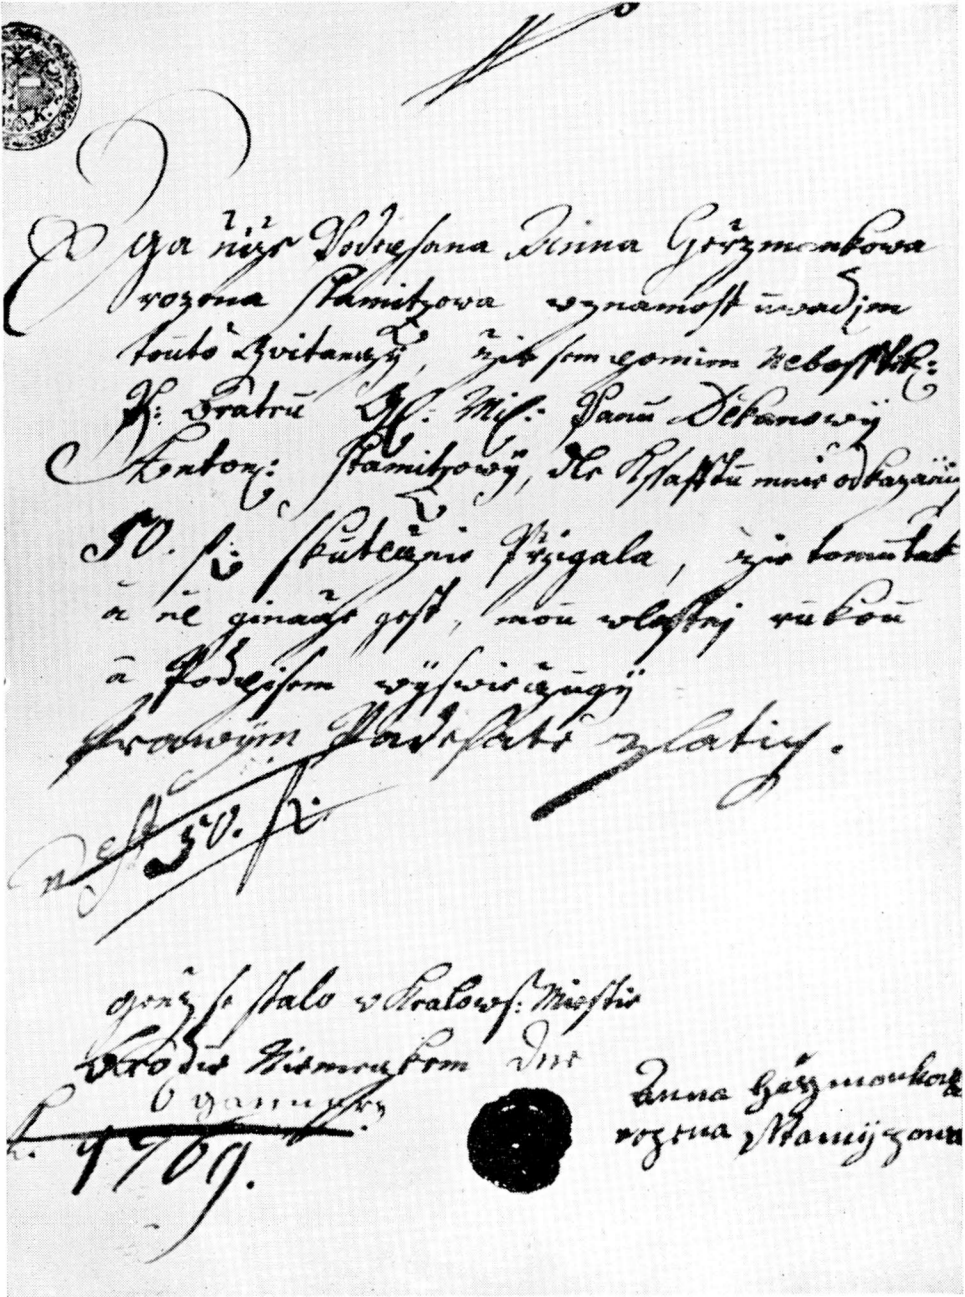 Ga niže Podepsana Anna Geržmankowa
rozena Stamitzowa w znamost uwadjm
touto Kwitanczy, že sem po mem Nebosstik:
P: Bratru Mil: Panu Děkanowÿ
Anton: Stamitzowÿ, dle Kssafftu mnie odkazanÿ
50. f skutecznie Przigala, že tomu tak
a ne ginacze gest, mou wlastnj rukou
a Podpisem wÿswieczugÿ
Prawÿm Padesate zlatich.
Est 50. f.
genž se stalo w Kralows: Miestie
Brodie Niemeczkem Dne
6 Januarz
1769.
Anna Geržmankowa
rozena Stamiczowa